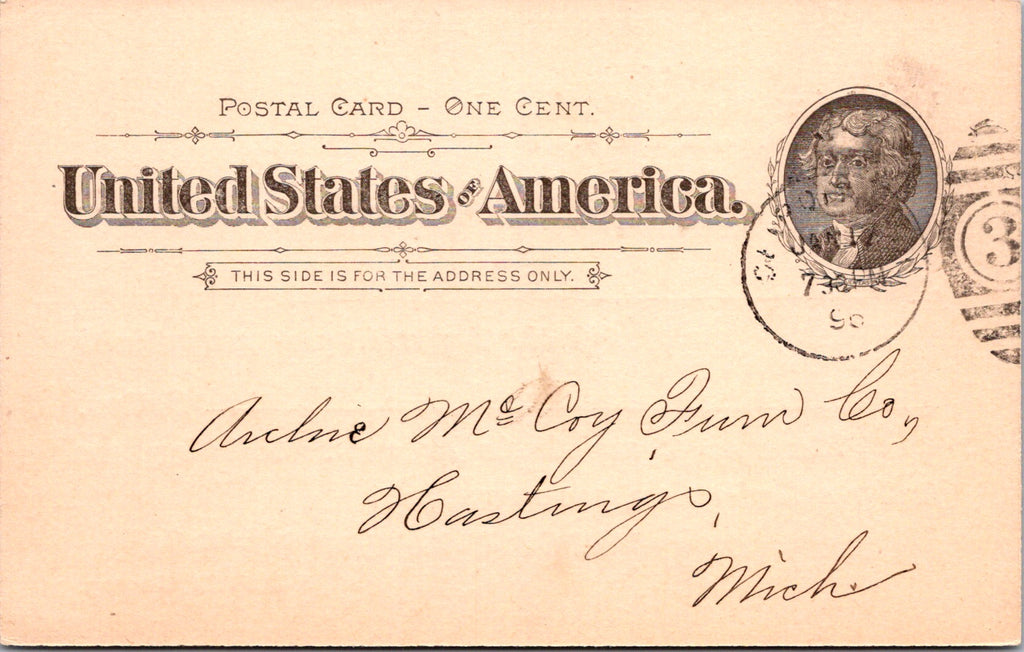 POSTAL CARD – ONE CENT.
United States OF America.
THIS SIDE IS FOR THE ADDRESS ONLY.
St
JAN 17
730 PM
96
3
Archie McCoy Furn Co,
Hastings,
Mich.